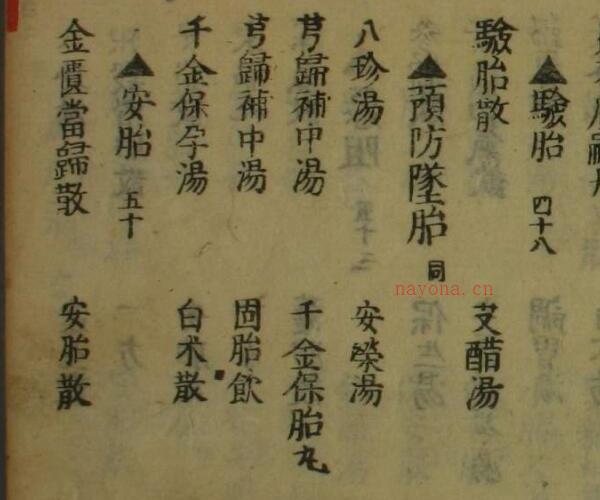 ▲驗胎 四十八
驗胎散 艾醋湯
▲預防墜胎 同
八珍湯 安榮湯
芎歸補中湯 千金保胎丸
芎歸補中湯 固胎飲
千金保孕湯 白术散
▲安胎 五十
金匱當歸散 安胎散
nayona.cn